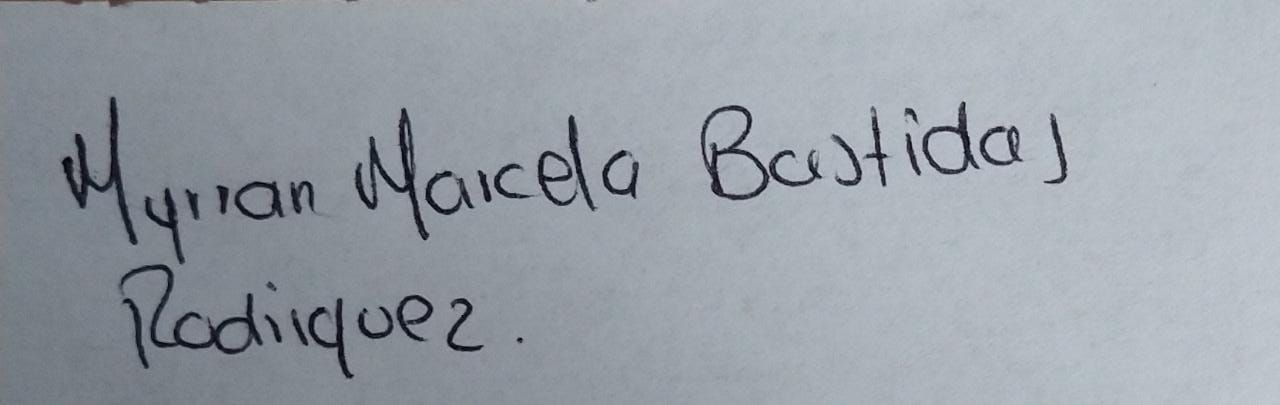 Myrian Marcela Bastidas
Rodriguez.